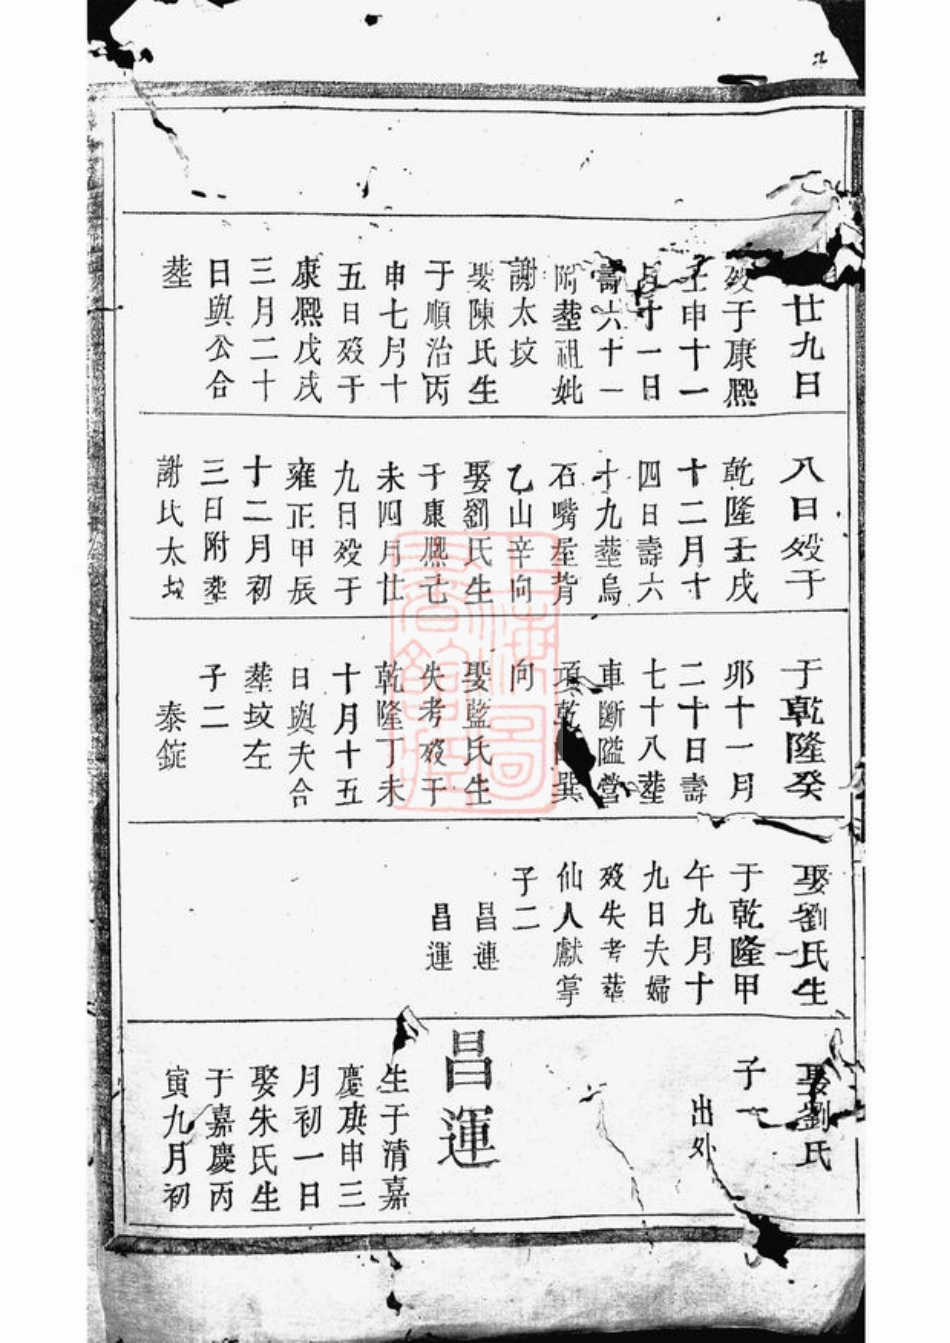 廿九日
殁于康熙
壬申十一
月十一日
壽六十一
附塟祖妣
謝太坟
娶陳氏生
于順治丙
申七月十
五日殁于
康熙戊戌
三月二十
日與公合
塟
八日殁于
乾隆壬戌
十二月十
四日壽六
十九塟烏
石嘴屋背
乙山辛向
娶劉氏生
于康熙乇
未四月廿
九日殁于
雍正甲辰
十二月初
三日附塟
謝氏太坟
于乾隆癸
夘十一月
二十日壽
七十八塟
車斷隘營
項乾巽
向
娶藍氏生
失考殁于
乾隆丁未
十月十五
日與夫合
塟坟左
子二
泰錠
娶劉氏生
于乾隆甲
午九月十
九日夫婦
殁失考塟
仙人獻掌
子二
昌連
昌運
娶劉氏
子一
出外
昌運
生于清嘉
慶庚申三
月初一日
娶朱氏生
于嘉慶丙
寅九月初
上海圖書館藏